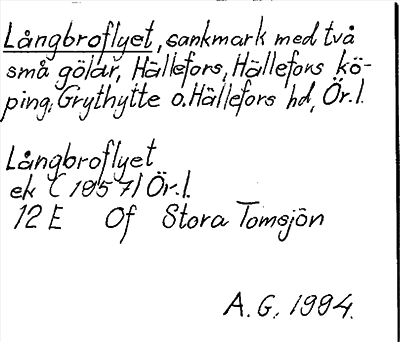 Långbroflyet, sankmark med två
små gölar, Hällefors, Hällefors kö-
ping, Grythytte o. Hällefors hd, Ör.l.
Långbroflyet
ek (1957) Ör.l.
12 E Of Stora Tomsjön
A.G. 1994.